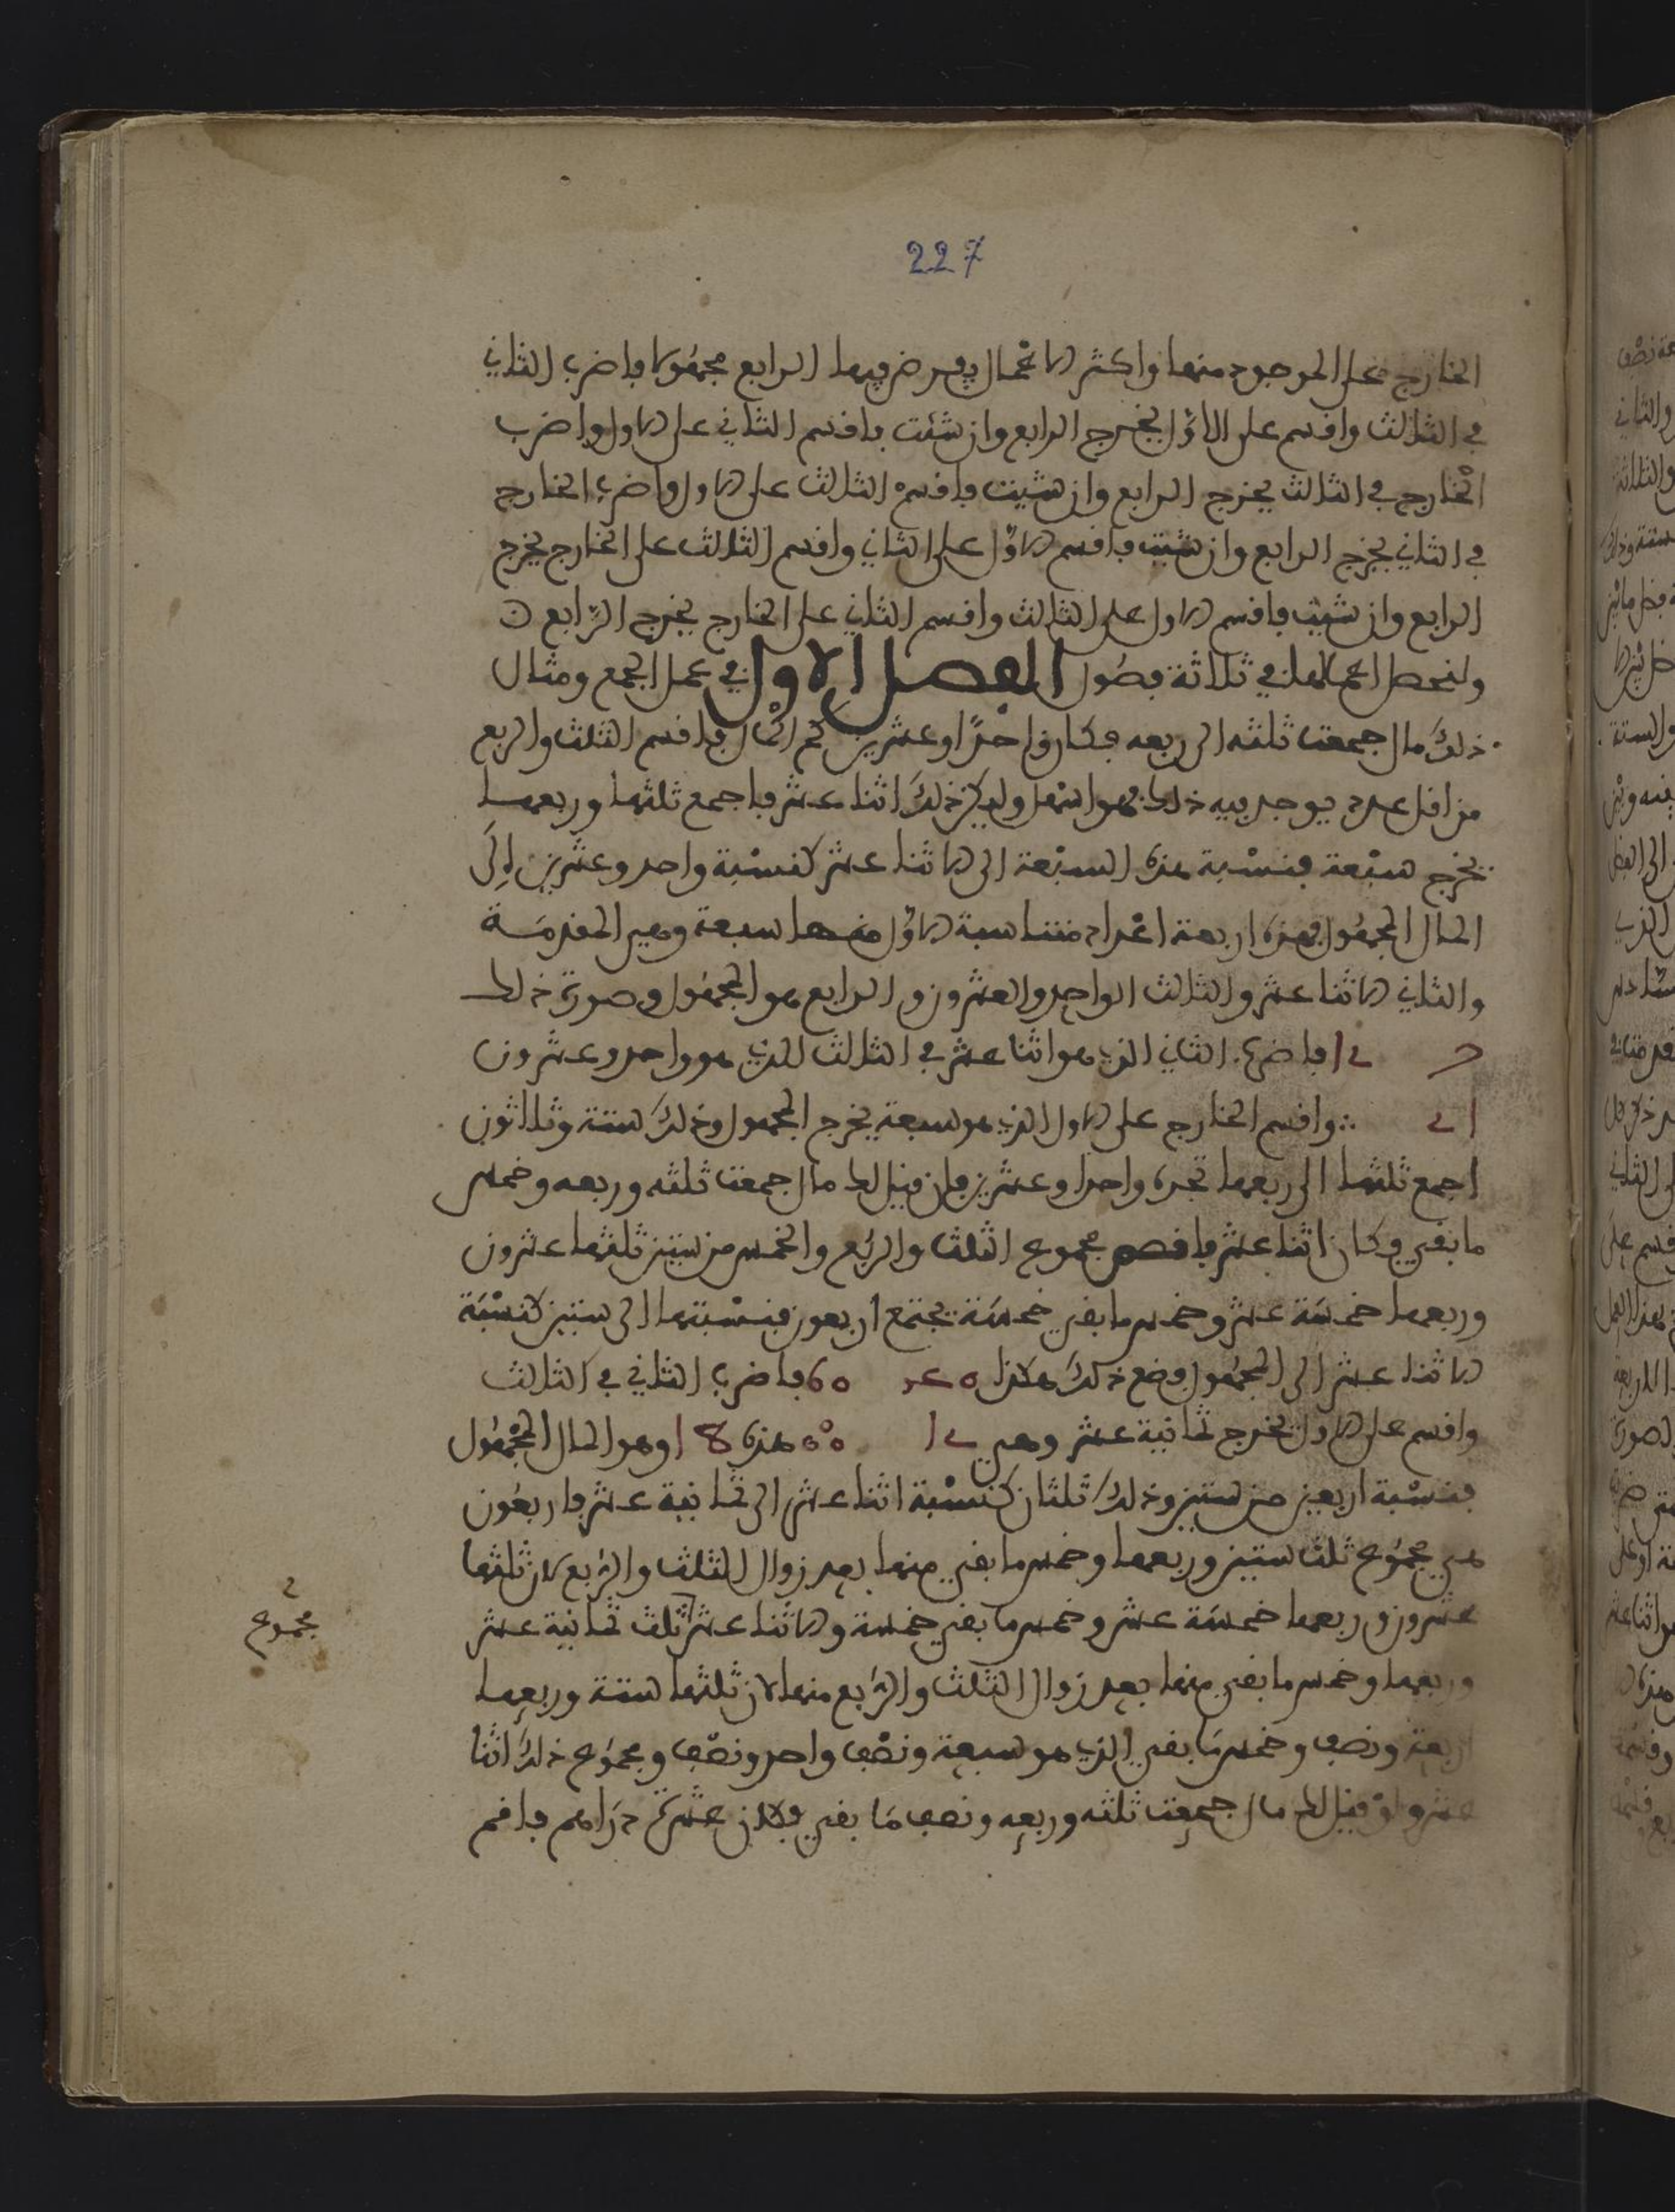 227
الخارج على الموجود منها واكثر الاعمال يفرض فيها الرابع مجهولا فاضرب الثاني
في الثالث واقسم على الاول يخرج الرابع وان شئت فاقسم الثاني على الاول واضرب
الخارج في الثالث يخرج الرابع وان شيت فاقسم الثالث على الاول واضرب الخارج
في الثاني يخرج الرابع وان شيت فاقسم الاول على الثاني واقسم الثالث على الخارج يخرج
الرابع وان شيت فاقسم الاول على الثالث واقسم الثاني على الخارج يخرج الرابع
اعمالها في ثلاثة فصول الفصل الاول في عمل الجمع ومثال
ذلك مال جمعت ثلثه الى ربعه فكان واحدا وعشرين كم المال فاقسم الثلث والربع
من اقل عدد يوجد فيه ذلك فهو اسهل وليكن ذلك اثنا عشر فاجمع ثلثها وربعها
يخرج سبعة فنسبة هذه السبعة الى الاثنا عشر كنسبة واحد وعشرين الى
المال المجهول فهذه اربعة اعداد متناسبة الاول منها سبعة وهي المقدمة
والثاني الاثنا عشر والثالث الواحد والعشرون والرابع هو المجهول وصورة ذلك
فاضرب الثاني الذي هو اثنا عشر في الثالث الذي هو واحد وعشرون
واقسم الخارج على الاول الذي هو سبعة يخرج المجهول وذلك ستة وثلاثون
اجمع ثلثها الى ربعها تجده واحدا وعشرين فان قيل لك مال جمعت ثلثه وربعه وخمس
ما بقي فكان اثنا عشر فاقصم مجموع الثلث والربع والخمس من ستين ثلثها عشرون
وربعها خمسة عشر وخمس ما بقي خمسة يجتمع اربعون فنسبتها الى ستين كنسبة
الاثنا عشر الى المجهول فضع ذلك هكذا 60 فاضرب الثاني في الثالث
واقسم على الاول يخرج ثمانية عشر وهي هذه 18 وهو المال المجهول
فنسبة اربعين من ستين وذلك ثلثان كنسبة اثنا عشر الى ثمانية عشر فاربعون
هي مجموع ثلث ستين وربعها وخمس ما بقي منها بعد زوال الثلث والربع لان ثلثها
عشرون وربعها خمسة عشر وخمس ما بقي خمسة والاثنا عشر ثلث ثمانية عشر
مجموع
وربعها وخمس ما بقي منها بعد زوال الثلث والربع منها لان ثلثها ستة وربعها
اربعة ونصف وخمس ما بقي الذي هو سبعة ونصف واحد ونصف ومجموع ذلك اثنا
عشر ولو قيل لك مال جمعت ثلثه وربعه ونصف ما بقي فكان عشرة دراهم فاقم